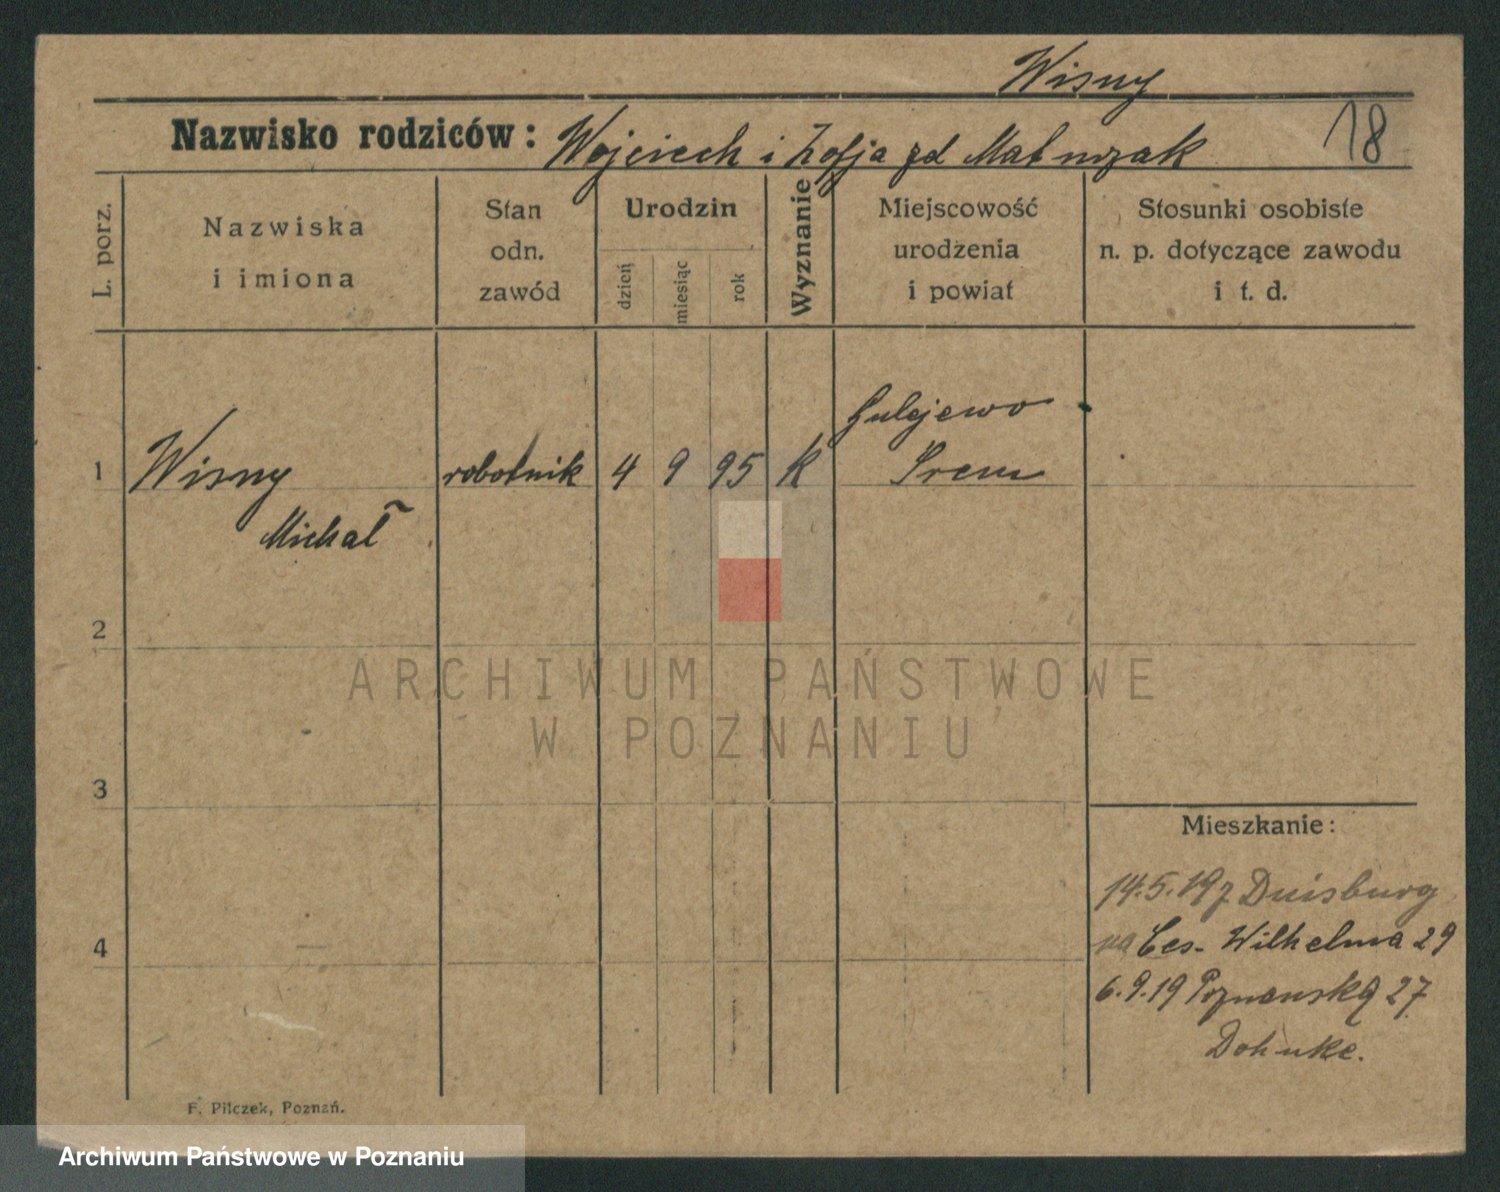 Wisny
Nazwisko rodziców: Wojciech i Zofja zd Matuszak
18
L. porz.
Nazwiska
i imiona
Stan
odn.
zawód
Urodzin
dzień
miesiąc
rok
Wyznanie
Miejscowość
urodzenia
i powiat
Stosunki osobiste
n. p. dotyczące zawodu
i t. d.
Gulejewo
1 Wisny robotnik 4 9 95 K Srem
Michał
2
ARCHIWUM PAŃSTWOWE
W POZNANIU
3
Mieszkanie:
14.5.19 z Duisburg
4
na Ces. Wilhelma 29
6.9.19 Poznanska 27
F. Pilczek, Poznań.
Archiwum Państwowe w Poznaniu